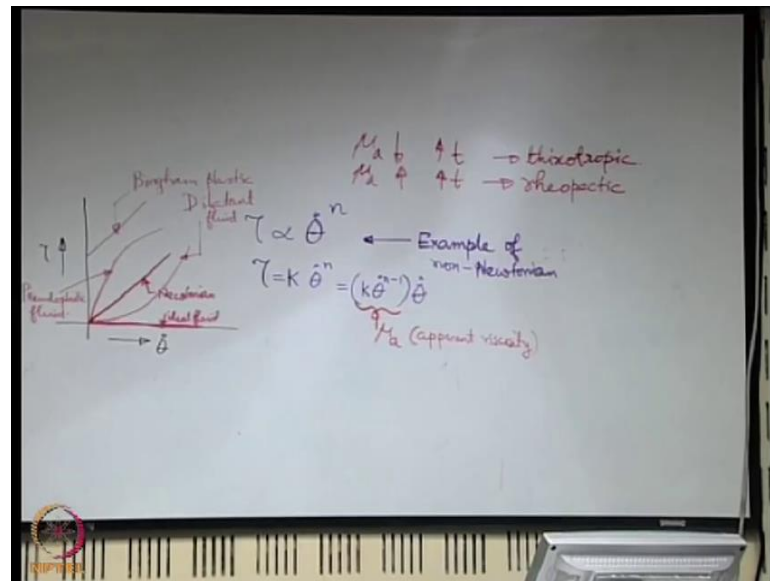 μa ↓ ↑ t → thixotropic
μa ↑ ↑ t → rheopectic
Bingham plastic
Dilatant
fluid
τ ↑
Pseudoplastic
fluid
Newtonian
ideal fluid
→ θ̇
τ ∝ θ̇ⁿ ← Example of
non-Newtonian
τ = K θ̇ⁿ = (Kθ̇ⁿ⁻¹) θ̇
μa (apparent viscosity)
NPTEL